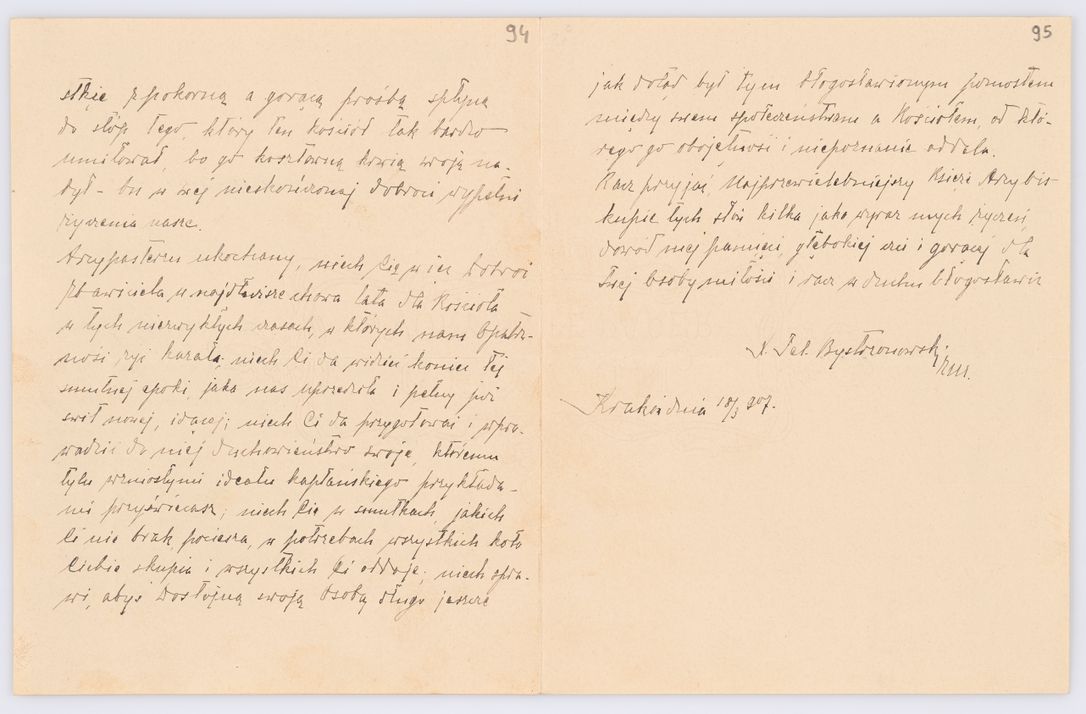 94
stkie z pokorną a gorącą prośbą spłyną
do stóp Tego, który ten Kościół tak bardzo
umiłował, bo go kosztowną krwią swoją na-
był – bu w swej nieskończonej dobroci wypełni
życzenia nasze.
Arcypasterzu ukochany, niech Cię w in dobroci
Zbawiciela w najdłuższe chowa lata dla Kościoła
w tych niezwykłych czasach, w których nam Opatrz-
ność żyć kazała; niech Ci da widzieć koniec tej
smutnej epoki, jaka nas uprzedziła i pełny już
świt nowej, idącej; niech Ci da przygotować i wpro-
wadzić do niej duchowieństwo swoje, któremu
tylu wzniosłymi ideału kapłańskiego przykłada-
mi przyświecasz; niech Cię w smutkach, jakich
Ci nie brak, pociesza, w potrzebach wszystkich koło
Ciebie skupia i wszystkich Ci oddaje; niech spra-
wi, abyś dostojną swoją Osobą długo jeszcze
95
jak dotąd był tym błogosławionym pomostem
między swem społeczeństwem a Kościołem, od któ-
rego go obojętność i niepoznanie oddala.
Racz przyjąć, Najprzewielebniejszy Księże Arcybis-
kupie tych słów kilka jako wyraz mych życzeń,
dowód mej pamięci, głębokiej czci i gorącej dla
Twej Osoby miłości i racz w duchu błogosławić
X. Jał. Bystrzonowski
Kraków dnia 18/3 907.